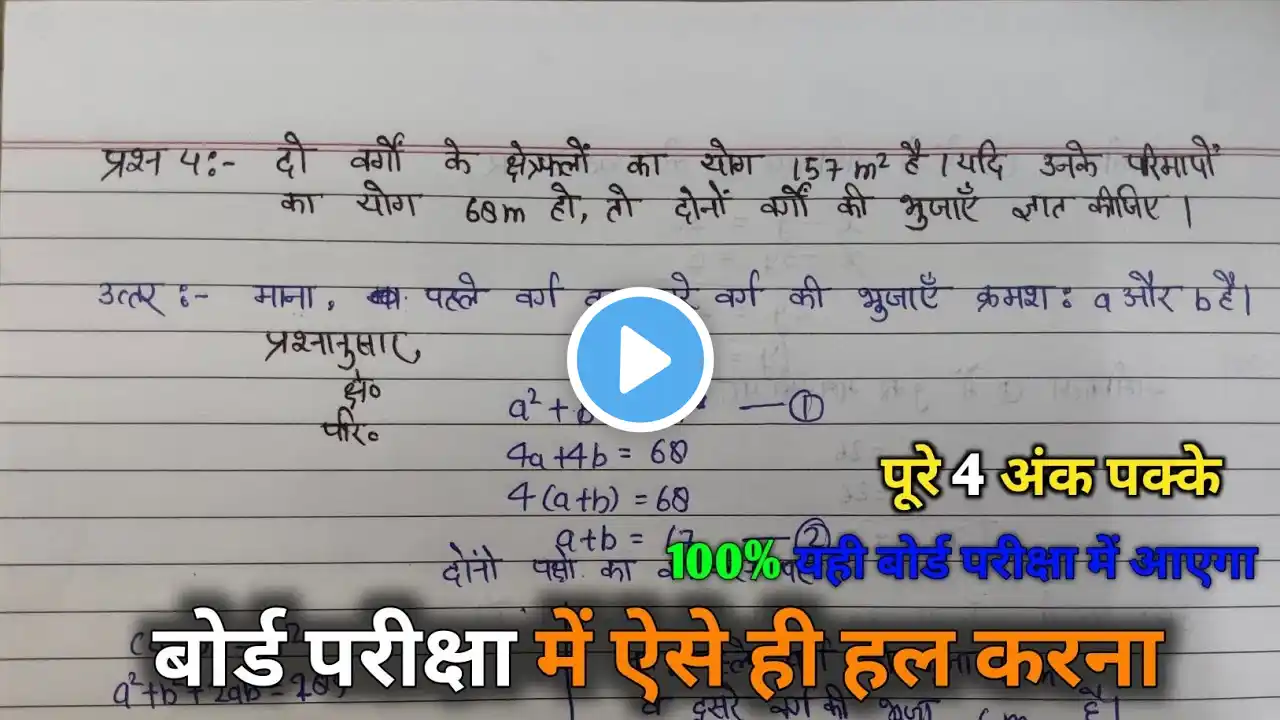 प्रश्न 4:- दो वर्गों के क्षेत्रफलों का योग 157 m² है। यदि उनके परिमापों
का योग 68m हो, तो दोनों वर्गों की भुजाएँ ज्ञात कीजिए।
उत्तर :- माना, पहले वर्ग वर्ग की भुजाएँ क्रमश: a और b है।
प्रश्नानुसार,
क्षे० a² + — ①
परि० 4a+4b = 68
4(a+b) = 68
a+b = 17 — ②
दोनों पक्षों का
पूरे 4 अंक पक्के
100% यही बोर्ड परीक्षा में आएगा
बोर्ड परीक्षा में ऐसे ही हल करना
a²+b²+2ab
व दूसरे वर्ग की भुजा है।